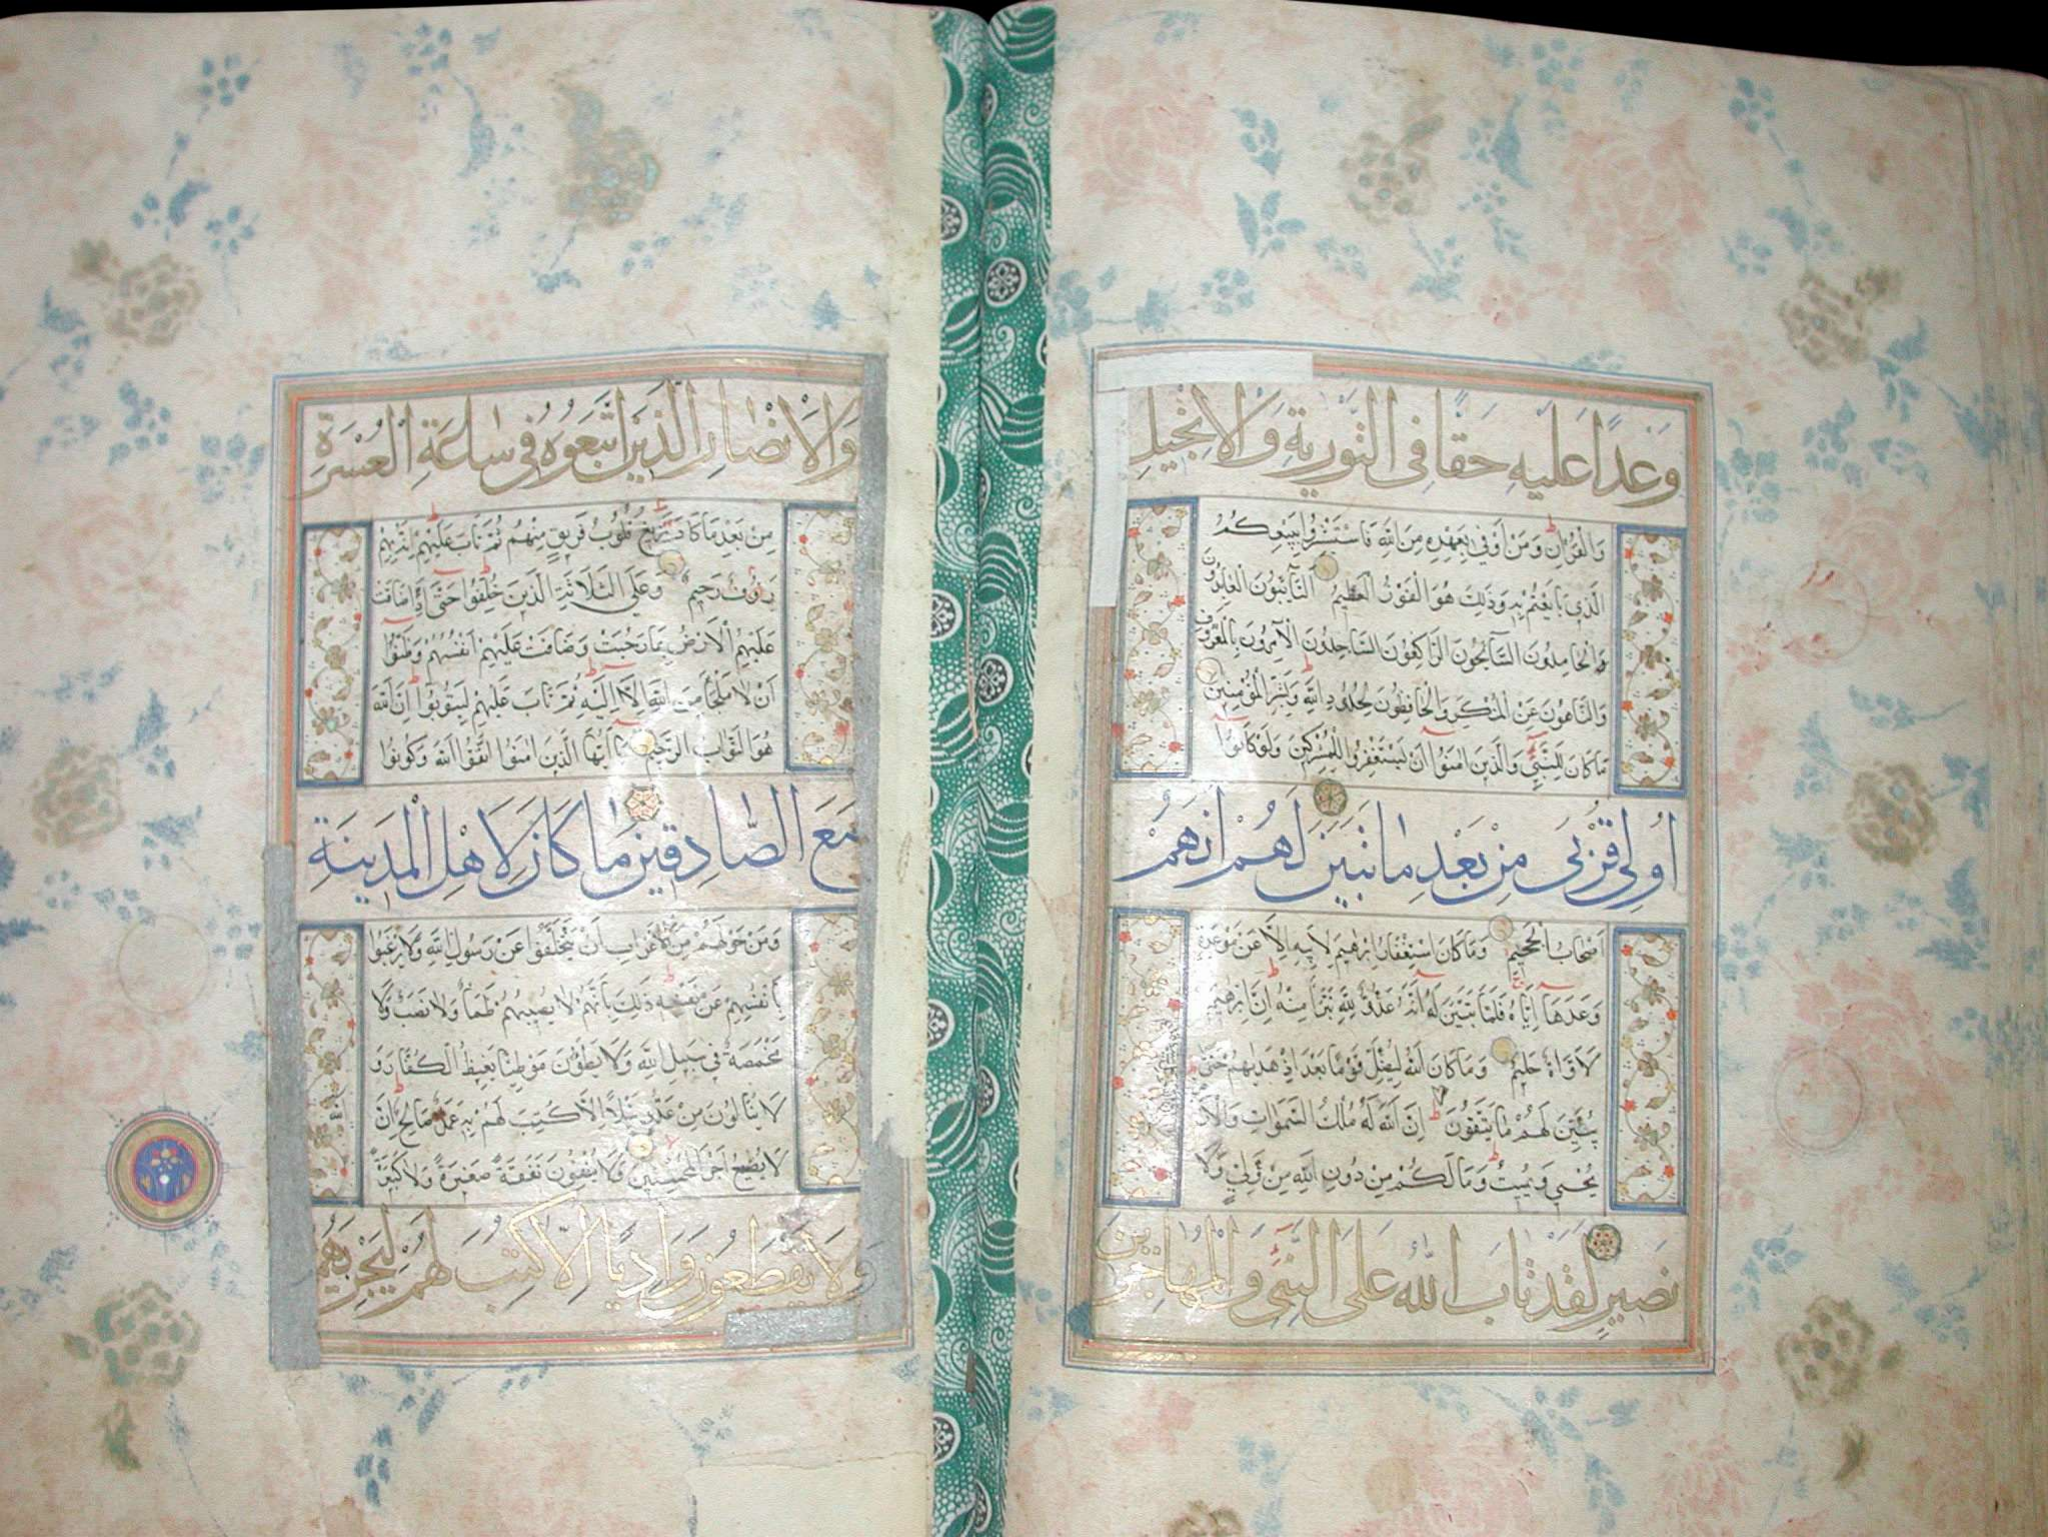 وَعْدًا عَلَيْهِ حَقًّا فِى التَّوْرٰيةِ وَالْاِنْجٖيلِ
وَالْقُرْاٰنِ وَمَنْ اَوْفٰى بِعَهْدِهٖ مِنَ اللّٰهِ فَاسْتَبْشِرُوا بِبَيْعِكُمُ
الَّذٖى بَايَعْتُمْ بِهٖ وَذٰلِكَ هُوَ الْفَوْزُ الْعَظٖيمُ اَلتَّآئِبُونَ الْعَابِدُونَ
الْحَامِدُونَ السَّآئِحُونَ الرَّاكِعُونَ السَّاجِدُونَ الْاٰمِرُونَ بِالْمَعْرُوفِ
وَالنَّاهُونَ عَنِ الْمُنْكَرِ وَالْحَافِظُونَ لِحُدُودِ اللّٰهِ وَبَشِّرِ الْمُؤْمِنٖينَ
مَا كَانَ لِلنَّبِىِّ وَالَّذٖينَ اٰمَنُوا اَنْ يَسْتَغْفِرُوا لِلْمُشْرِكٖينَ وَلَوْ كَانُوا
اُولٖى قُرْبٰى مِنْ بَعْدِ مَا تَبَيَّنَ لَهُمْ اَنَّهُمْ
اَصْحَابُ الْجَحٖيمِ وَمَا كَانَ اسْتِغْفَارُ اِبْرٰهٖيمَ لِاَبٖيهِ اِلَّا عَنْ مَوْعِدَةٍ
وَعَدَهَا اِيَّاهُ فَلَمَّا تَبَيَّنَ لَهُ اَنَّهُ عَدُوٌّ لِلّٰهِ تَبَرَّاَ مِنْهُ اِنَّ اِبْرٰهٖيمَ
لَاَوَّاهٌ حَلٖيمٌ وَمَا كَانَ اللّٰهُ لِيُضِلَّ قَوْمًا بَعْدَ اِذْ هَدٰيهُمْ حَتّٰى
يُبَيِّنَ لَهُمْ مَا يَتَّقُونَ اِنَّ اللّٰهَ لَهُ مُلْكُ السَّمٰوَاتِ وَالْاَرْ
يُحْيٖى وَيُمٖيتُ وَمَا لَكُمْ مِنْ دُونِ اللّٰهِ مِنْ وَلِىٍّ وَلَا
نَصٖيرٍ لَقَدْ تَابَ اللّٰهُ عَلَى النَّبِىِّ وَالْمُهَاجِرٖينَ
وَالْاَنْصَارِ الَّذٖينَ اتَّبَعُوهُ فٖى سَاعَةِ الْعُسْرَةِ
مِنْ بَعْدِ مَا كَادَ يَزٖيغُ قُلُوبُ فَرٖيقٍ مِنْهُمْ ثُمَّ تَابَ عَلَيْهِمْ اِنَّهُ بِهِمْ
رَؤُفٌ رَحٖيمٌ وَعَلَى الثَّلَاثَةِ الَّذٖينَ خُلِّفُوا حَتّٰى اِذَا ضَاقَتْ
عَلَيْهِمُ الْاَرْضُ بِمَا رَحُبَتْ وَضَاقَتْ عَلَيْهِمْ اَنْفُسُهُمْ وَظَنُّوا
اَنْ لَا مَلْجَاَ مِنَ اللّٰهِ اِلَّا اِلَيْهِ ثُمَّ تَابَ عَلَيْهِمْ لِيَتُوبُوا اِنَّ اللّٰهَ
هُوَ التَّوَّابُ الرَّحٖيمُ يَا اَيُّهَا الَّذٖينَ اٰمَنُوا اتَّقُوا اللّٰهَ وَكُونُوا
مَعَ الصَّادِقٖينَ مَا كَانَ لِاَهْلِ الْمَدٖينَةِ
وَمَنْ حَوْلَهُمْ مِنَ الْاَعْرَابِ اَنْ يَتَخَلَّفُوا عَنْ رَسُولِ اللّٰهِ وَلَا يَرْغَبُوا
بِاَنْفُسِهِمْ عَنْ نَفْسِهٖ ذٰلِكَ بِاَنَّهُمْ لَا يُصٖيبُهُمْ ظَمَاٌ وَلَا نَصَبٌ وَلَا
مَخْمَصَةٌ فٖى سَبٖيلِ اللّٰهِ وَلَا يَطَؤُنَ مَوْطِئًا يَغٖيظُ الْكُفَّارَ وَ
لَا يَنَالُونَ مِنْ عَدُوٍّ نَيْلًا اِلَّا كُتِبَ لَهُمْ بِهٖ عَمَلٌ صَالِحٌ اِنَّ اللّٰهَ
لَا يُضٖيعُ اَجْرَ الْمُحْسِنٖينَ وَلَا يُنْفِقُونَ نَفَقَةً صَغٖيرَةً وَلَا كَبٖيرَةً
وَلَا يَقْطَعُونَ وَادِيًا اِلَّا كُتِبَ لَهُمْ لِيَجْزِيَهُمُ